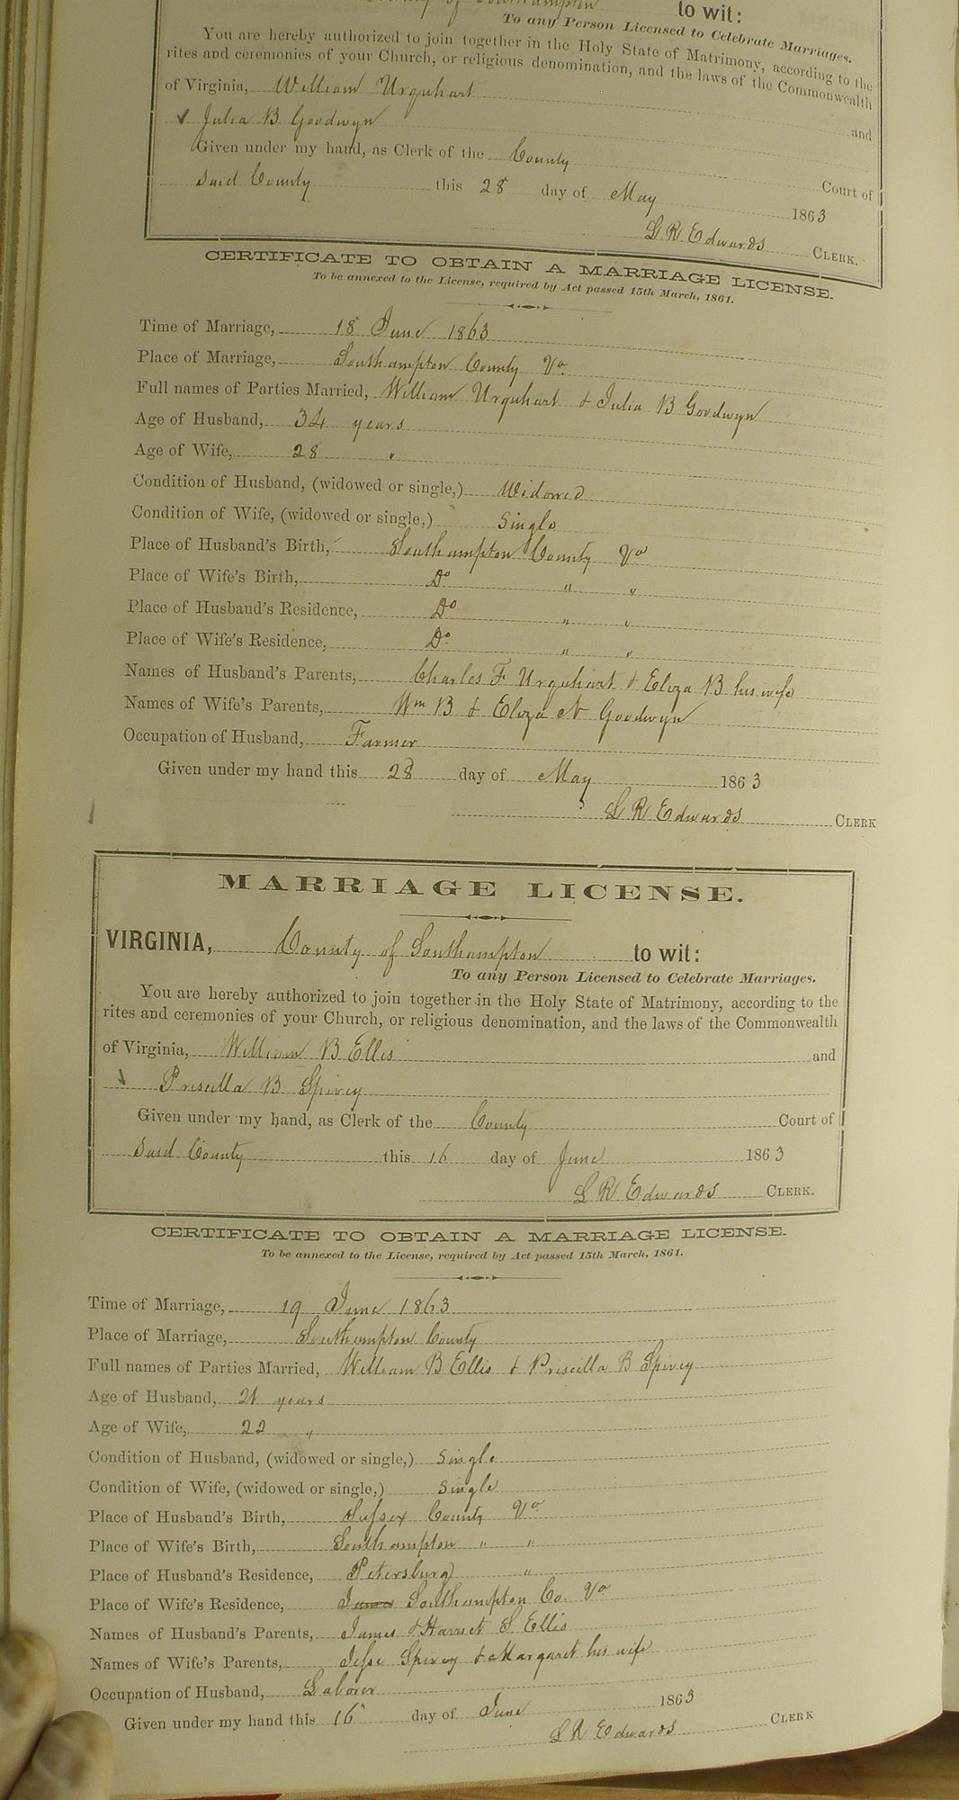 County of Southampton to wit:
To any Person Licensed to Celebrate Marriages.
You are hereby authorized to join together in the Holy State of Matrimony, according to the
rites and ceremonies of your Church, or religious denomination, and the laws of the Commonwealth
of Virginia, William Urquhart and
Julia B Goodwyn
Given under my hand, as Clerk of the County Court of
said County this 28 day of May 1863
L R Edwards CLERK.
CERTIFICATE TO OBTAIN A MARRIAGE LICENSE.
To be annexed to the License, required by Act passed 15th March, 1861.
Time of Marriage, 18 June 1863
Place of Marriage, Southampton County Va
Full names of Parties Married, William Urquhart & Julia B Goodwyn
Age of Husband, 34 years
Age of Wife, 28 "
Condition of Husband, (widowed or single,) Widowed
Condition of Wife, (widowed or single,) Single
Place of Husband's Birth, Southampton County Va
Place of Wife's Birth, Do " "
Place of Husband's Residence, Do " "
Place of Wife's Residence, Do " "
Names of Husband's Parents, Charles F Urquhart & Eliza B his wife
Names of Wife's Parents, Wm B & Eliza N Goodwyn
Occupation of Husband, Farmer
Given under my hand this 28 day of May 1863
L R Edwards CLERK
MARRIAGE LICENSE.
VIRGINIA, County of Southampton to wit:
To any Person Licensed to Celebrate Marriages.
You are hereby authorized to join together in the Holy State of Matrimony, according to the
rites and ceremonies of your Church, or religious denomination, and the laws of the Commonwealth
of Virginia, William B Ellis and
Priscilla B Spivey
Given under my hand, as Clerk of the County Court of
said County this 16 day of June 1863
L R Edwards CLERK.
CERTIFICATE TO OBTAIN A MARRIAGE LICENSE.
To be annexed to the License, required by Act passed 15th March, 1861.
Time of Marriage, 19 June 1863
Place of Marriage, Southampton County
Full names of Parties Married, William B Ellis & Priscilla B Spivey
Age of Husband, 21 years
Age of Wife, 22 "
Condition of Husband, (widowed or single,) Single
Condition of Wife, (widowed or single,) Single
Place of Husband's Birth, Sussex County Va
Place of Wife's Birth, Southampton " "
Place of Husband's Residence, Petersburg "
Place of Wife's Residence, Southampton Co. Va
Names of Husband's Parents, James & Harriet S Ellis
Names of Wife's Parents, Jesse Spivey & Margaret his wife
Occupation of Husband, Laborer
Given under my hand this 16 day of June 1863
L R Edwards CLERK